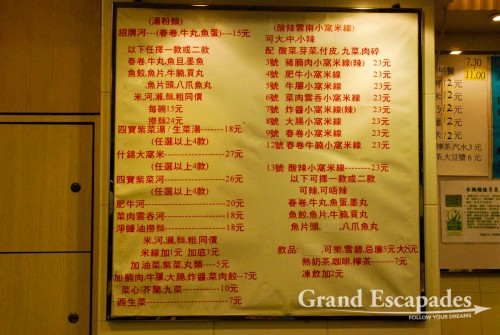 (湯粉麵)
招牌河---(春卷,牛丸,魚蛋)---15元
以下任擇一款或二款
春卷,牛丸,魚旦,墨魚
魚餃,魚片,牛腩,貢丸
魚片頭,八爪魚丸
米,河,瀨,麵,粗同價
每碗15元
撈麵24元
四寶紫菜湯/生菜湯------18元
(任選以上4款)
什錦大窩米------27元
(任選以上4款)
四寶紫菜河------26元
(任選以上4款)
肥牛河------20元
菜肉雲吞河------18元
淨蠔油撈麵------18元
米,河,瀨,麵,粗同價
米線加1元 加底3元
加油菜,紫菜,丸類----5元
加腩肉,牛𦟌,大腩,炸醬,菜肉餃--7元
菜心,芥蘭,九菜------10元
西生菜------7元
(酸辣雲南小窩米線)
可大,中,小辣
配 酸菜,芽菜,付皮,九菜,肉碎
3號 豬腩肉小窩米線(辣) 23元
4號 肥牛小窩米線 23元
5號 牛𦟌小窩米線 23元
6號 菜肉雲吞小窩米線 23元
7號 炸醬小窩米線(辣) 23元
8號 大腸小窩米線 23元
9號 春卷小窩米線 23元
12號 春卷牛腩小窩米線 23元
13號 酸辣小窩米線--------23元
以下可選擇一款或二款
可辣,可唔辣
春卷,牛丸,魚蛋,墨丸
魚餃,魚片,牛腩,貢丸
魚片頭, ,八爪魚丸
飲品: ,可樂,雪碧,忌廉5元大8元
熱奶茶,咖啡,檸茶------7元
凍飲加2元
7.30
11.00
2元
2元
2元
茶,汽水3元
茶,大豆漿6元
Grand Escapades
FOLLOW YOUR DREAMS